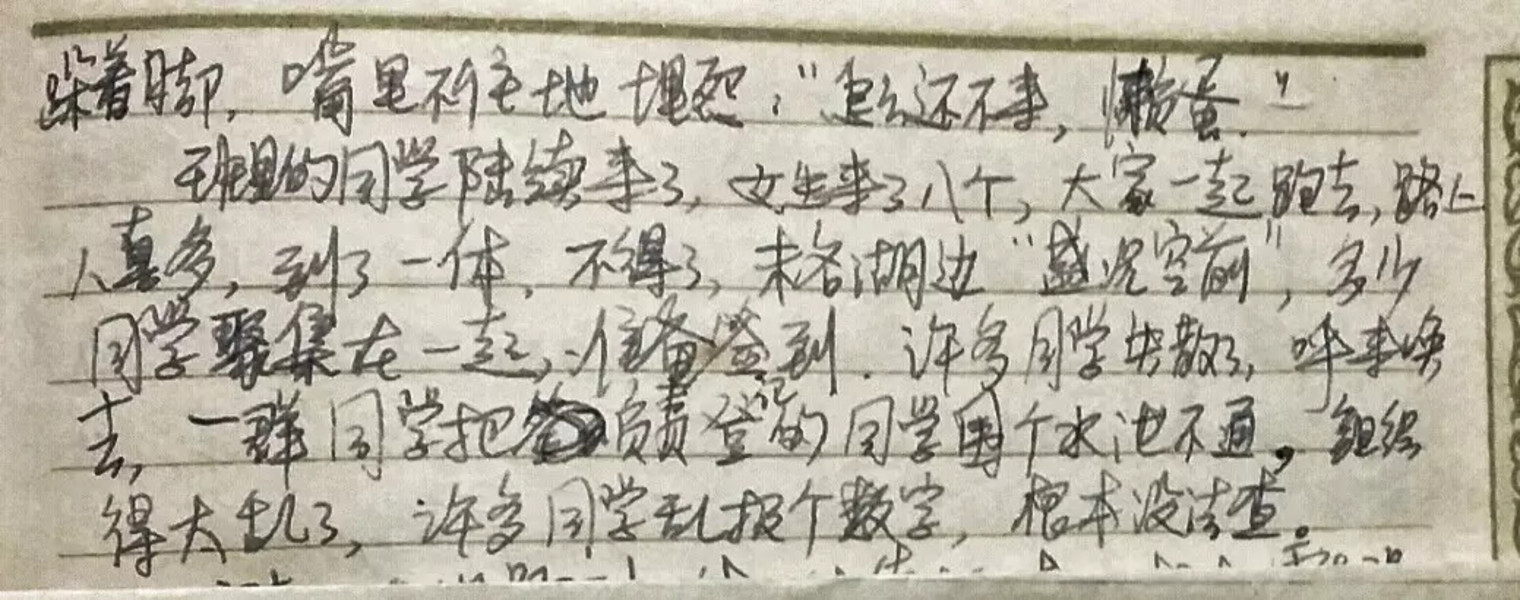 跺着脚，嘴里不住地埋怨：“怎么还不来，懒蛋.”
班里的同学陆续来了，女生来了八个，大家一起跑去，路上
人真多，到了一体，不得了，未名湖边“盛况空前”，多少
同学聚集在一起，准备签到．许多同学失散了，呼来唤
去，一群同学把负责登记的同学围个水池不通，组织
得太乱了，许多同学乱报个数字，根本没法查。